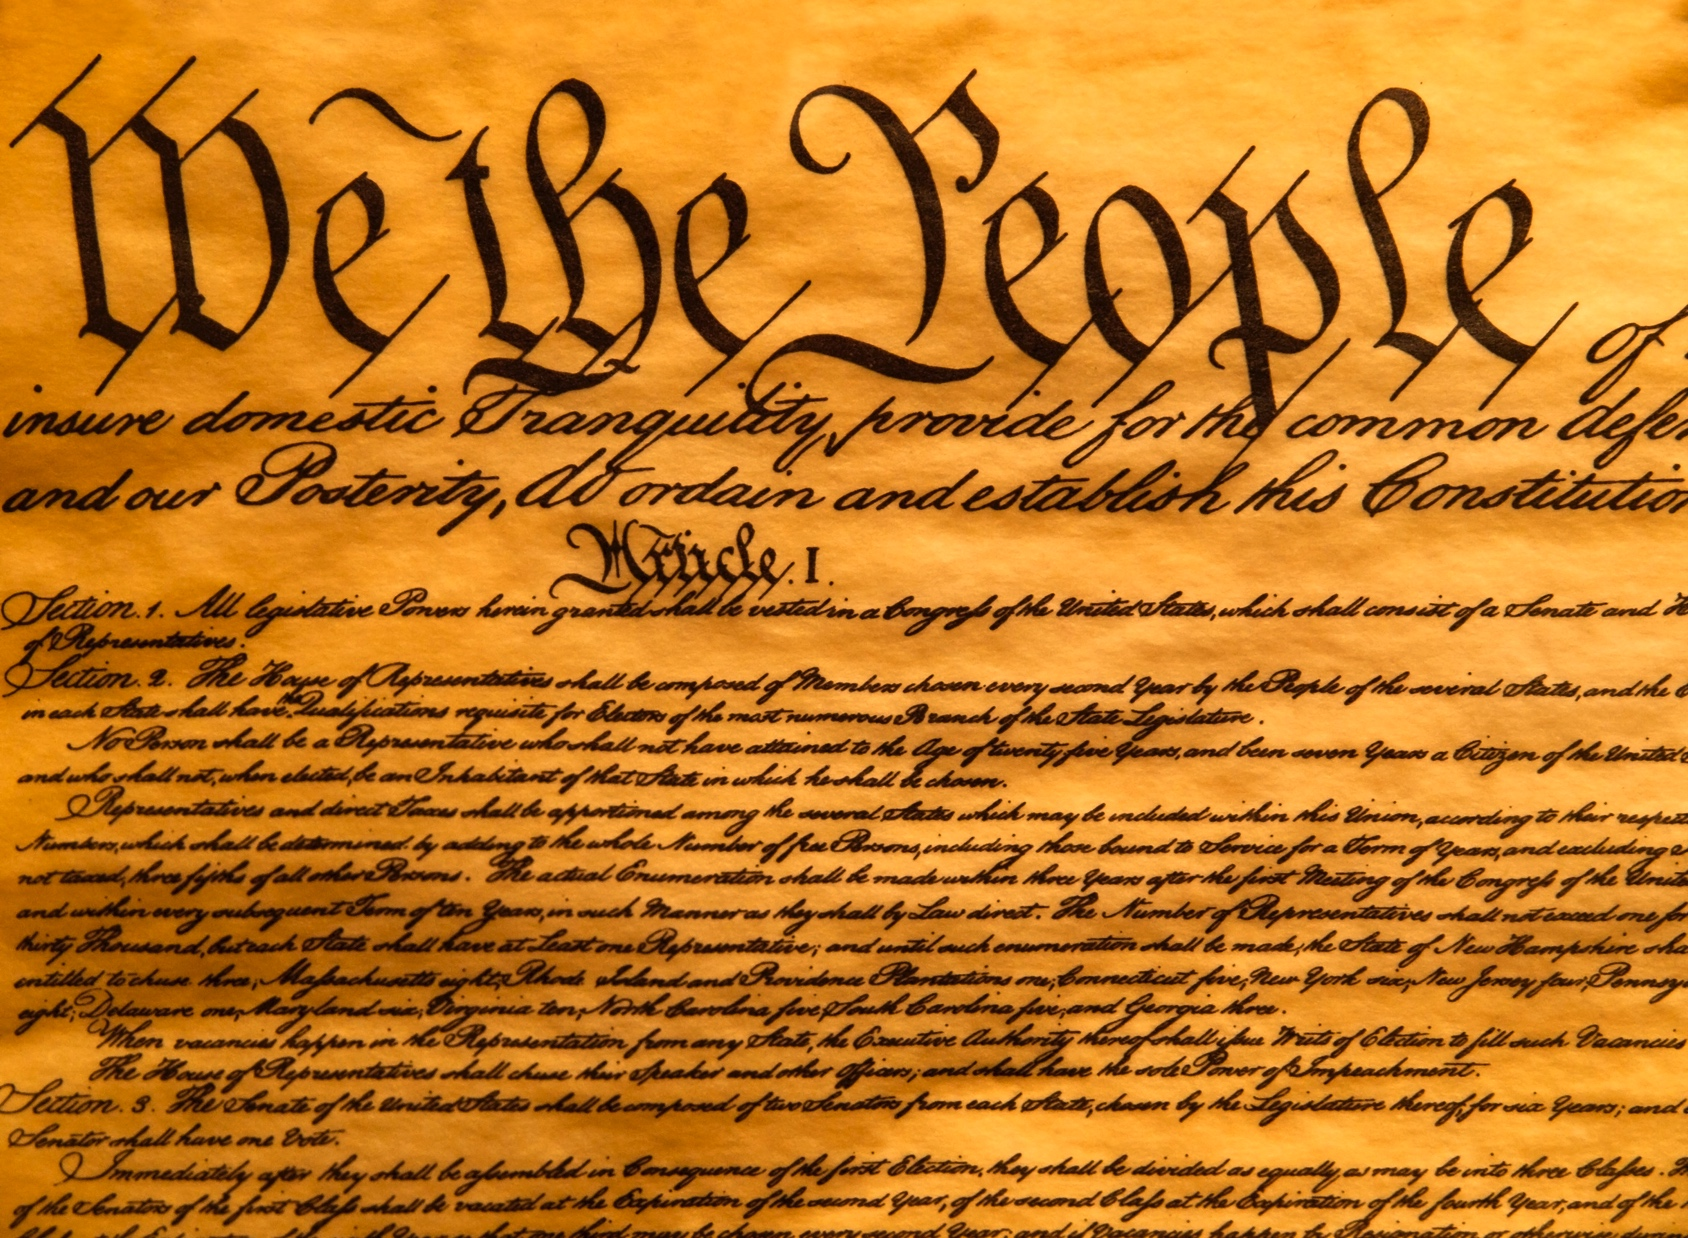 We the People of
insure domestic Tranquility, provide for the common defen
and our Posterity, do ordain and establish this Constitution
Article. I.
Section. 1. All legislative Powers herein granted shall be vested in a Congress of the United States, which shall consist of a Senate and H
of Representatives.
Section. 2. The House of Representatives shall be composed of Members chosen every second Year by the People of the several States, and the E
in each State shall have the Qualifications requisite for Electors of the most numerous Branch of the State Legislature.
No Person shall be a Representative who shall not have attained to the Age of twenty five Years, and been seven Years a Citizen of the United
and who shall not, when elected, be an Inhabitant of that State in which he shall be chosen.
Representatives and direct Taxes shall be apportioned among the several States which may be included within this Union, according to their respect
Numbers, which shall be determined by adding to the whole Number of free Persons, including those bound to Service for a Term of Years, and excluding
not taxed, three fifths of all other Persons. The actual Enumeration shall be made within three Years after the first Meeting of the Congress of the Unite
and within every subsequent Term of ten Years, in such Manner as they shall by Law direct. The Number of Representatives shall not exceed one for
thirty Thousand, but each State shall have at Least one Representative; and until such enumeration shall be made, the State of New Hampshire sha
entitled to chuse three, Massachusetts eight, Rhode Island and Providence Plantations one, Connecticut five, New York six, New Jersey four, Pennsy
eight, Delaware one, Maryland six, Virginia ten, North Carolina five, South Carolina five, and Georgia three.
When vacancies happen in the Representation from any State, the Executive Authority thereof shall issue Writs of Election to fill such Vacancies
The House of Representatives shall chuse their Speaker and other Officers; and shall have the sole Power of Impeachment.
Section. 3. The Senate of the United States shall be composed of two Senators from each State, chosen by the Legislature thereof, for six Years; and
Senator shall have one Vote.
Immediately after they shall be assembled in Consequence of the first Election, they shall be divided as equally as may be into three Classes.
of the Senators of the first Class shall be vacated at the Expiration of the second Year, of the second Class at the Expiration of the fourth Year, and of the
that one third may be chosen every second Year; and if Vacancies happen by Resignation or otherwise